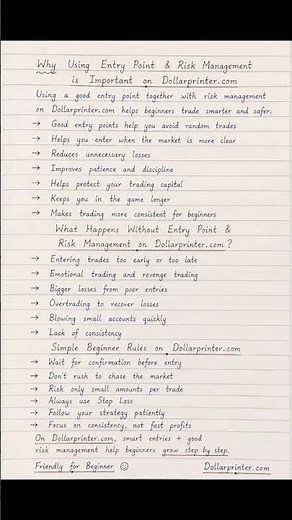 Why Using Entry Point & Risk Management
is Important on Dollarprinter.com
Using a good entry point together with risk management
on Dollarprinter.com helps beginners trade smarter and safer.
→ Good entry points help you avoid random trades
→ Helps you enter when the market is more clear
→ Reduces unnecessary losses
→ Improves patience and discipline
→ Helps protect your trading capital
→ Keeps you in the game longer
→ Makes trading more consistent for beginners
What Happens Without Entry Point &
Risk Management on Dollarprinter.com?
→ Entering trades too early or too late
→ Emotional trading and revenge trading
→ Bigger losses from poor entries
→ Overtrading to recover losses
→ Blowing small accounts quickly
→ Lack of consistency
Simple Beginner Rules on Dollarprinter.com
→ Wait for confirmation before entry
→ Don't rush to chase the market
→ Risk only small amounts per trade
→ Always use Stop Loss
→ Follow your strategy patiently
→ Focus on consistency, not fast profits
On Dollarprinter.com, smart entries + good
risk management help beginners grow step by step.
Friendly for Beginner ☺ Dollarprinter.com